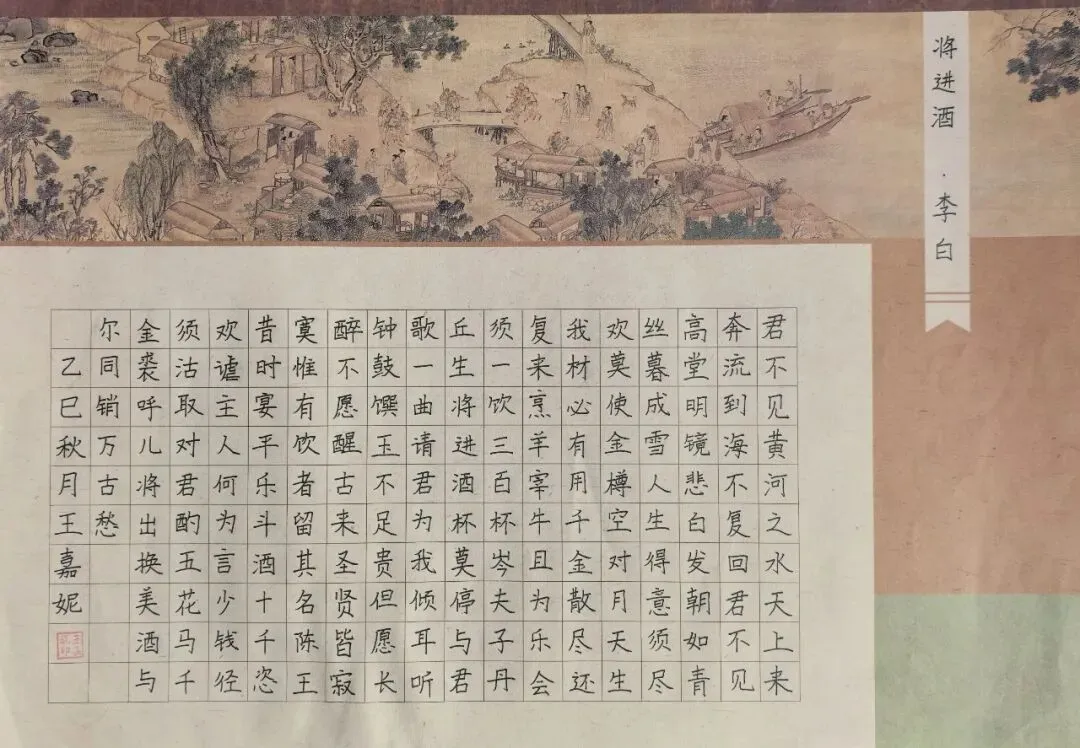 将进酒·李白
君不见黄河之水天上来
奔流到海不复回君不见
高堂明镜悲白发朝如青
丝暮成雪人生得意须尽
欢莫使金樽空对月天生
我材必有用千金散尽还
复来烹羊宰牛且为乐会
须一饮三百杯岑夫子丹
丘生将进酒杯莫停与君
歌一曲请君为我倾耳听
钟鼓馔玉不足贵但愿长
醉不愿醒古来圣贤皆寂
寞惟有饮者留其名陈王
昔时宴平乐斗酒十千恣
欢谑主人何为言少钱径
须沽取对君酌五花马千
金裘呼儿将出换美酒与
尔同销万古愁
乙巳秋月王嘉妮